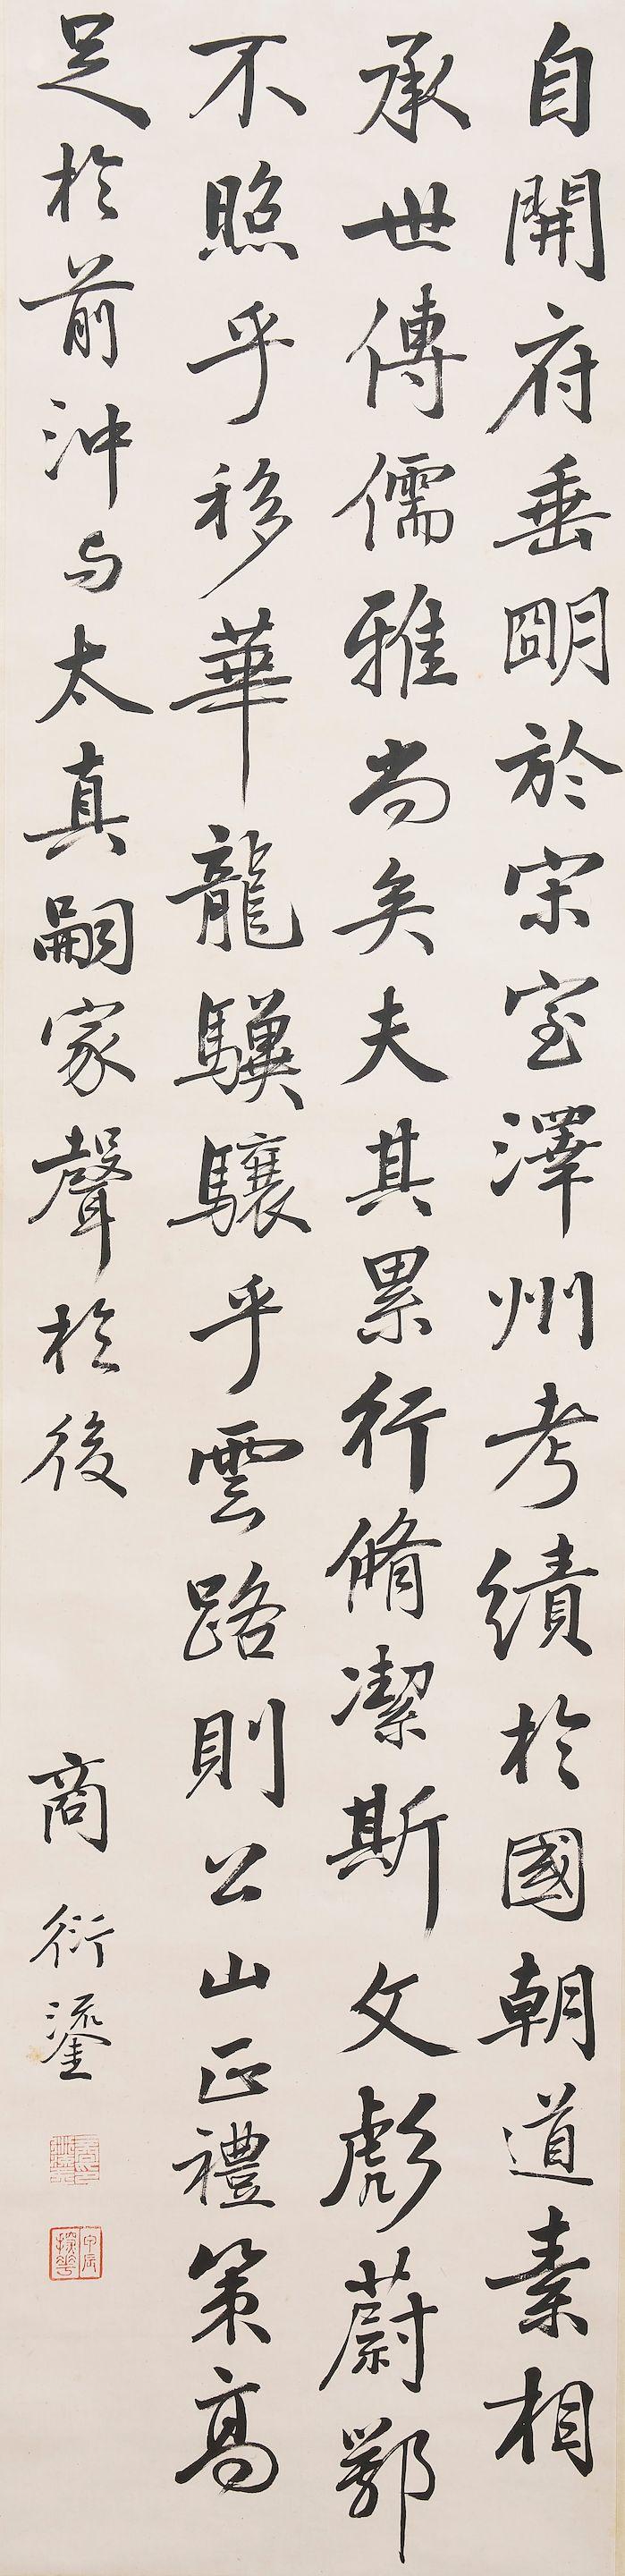 自開府垂朙於宋室澤州考績於國朝道素相
承世傳儒雅尚矣夫其累行脩潔斯文彪蔚鄂
不照乎移華龍驥驤乎雲路則公山正禮策高
足於前沖与太真嗣家聲於後
商衍鎏
甲辰探花